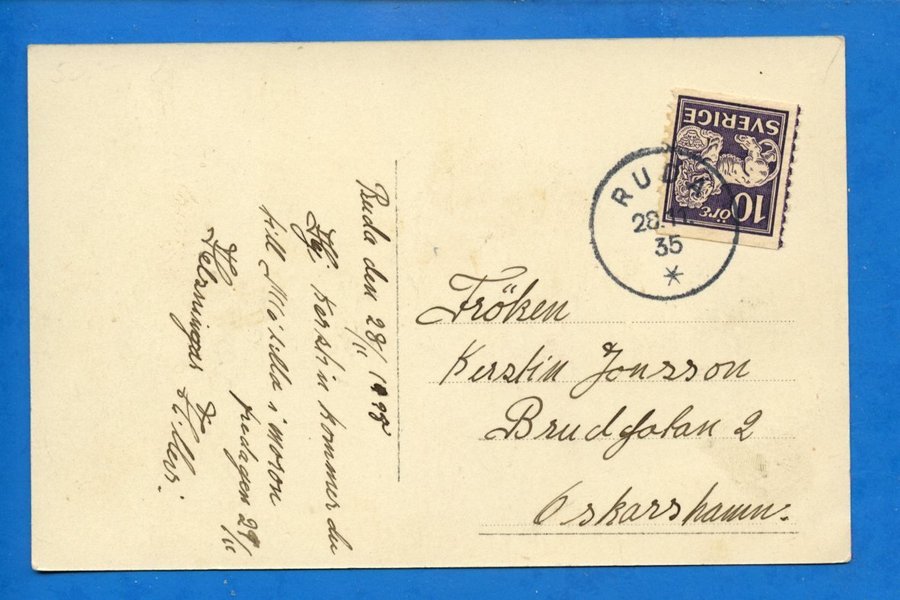 Ruda den 28/11 1935
Hej Kerstin kommer du
till Målilla i moron
fredagen 29/11
Helsningar
SVERIGE
10 öre
RUDA
28.11
35
Fröken
Kerstin Jonsson
Brudgatan 2
Oskarshamn.